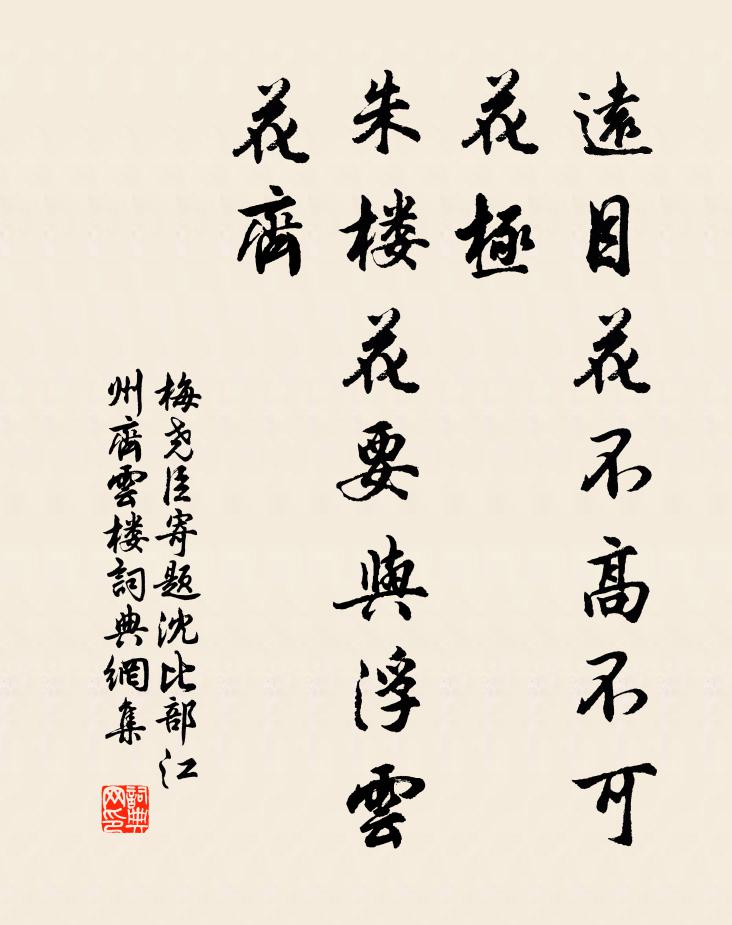 遠目花不高不可
花極
朱楼花要與浮雲
花齊
梅堯臣寄題沈比部江
州齊雲楼詞典網集
詞典网印